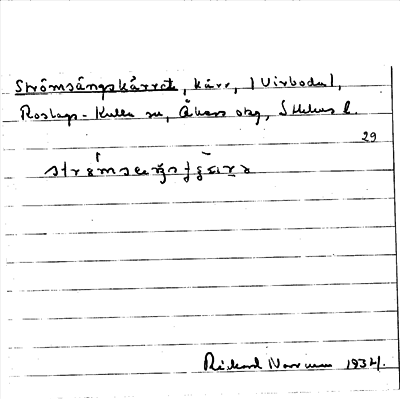 Strömsängskärret, kärr, (Virboda),
Roslags-Kulla sn, Åkers skg, Sthlms l.
29
Rickard Norrman 1934.